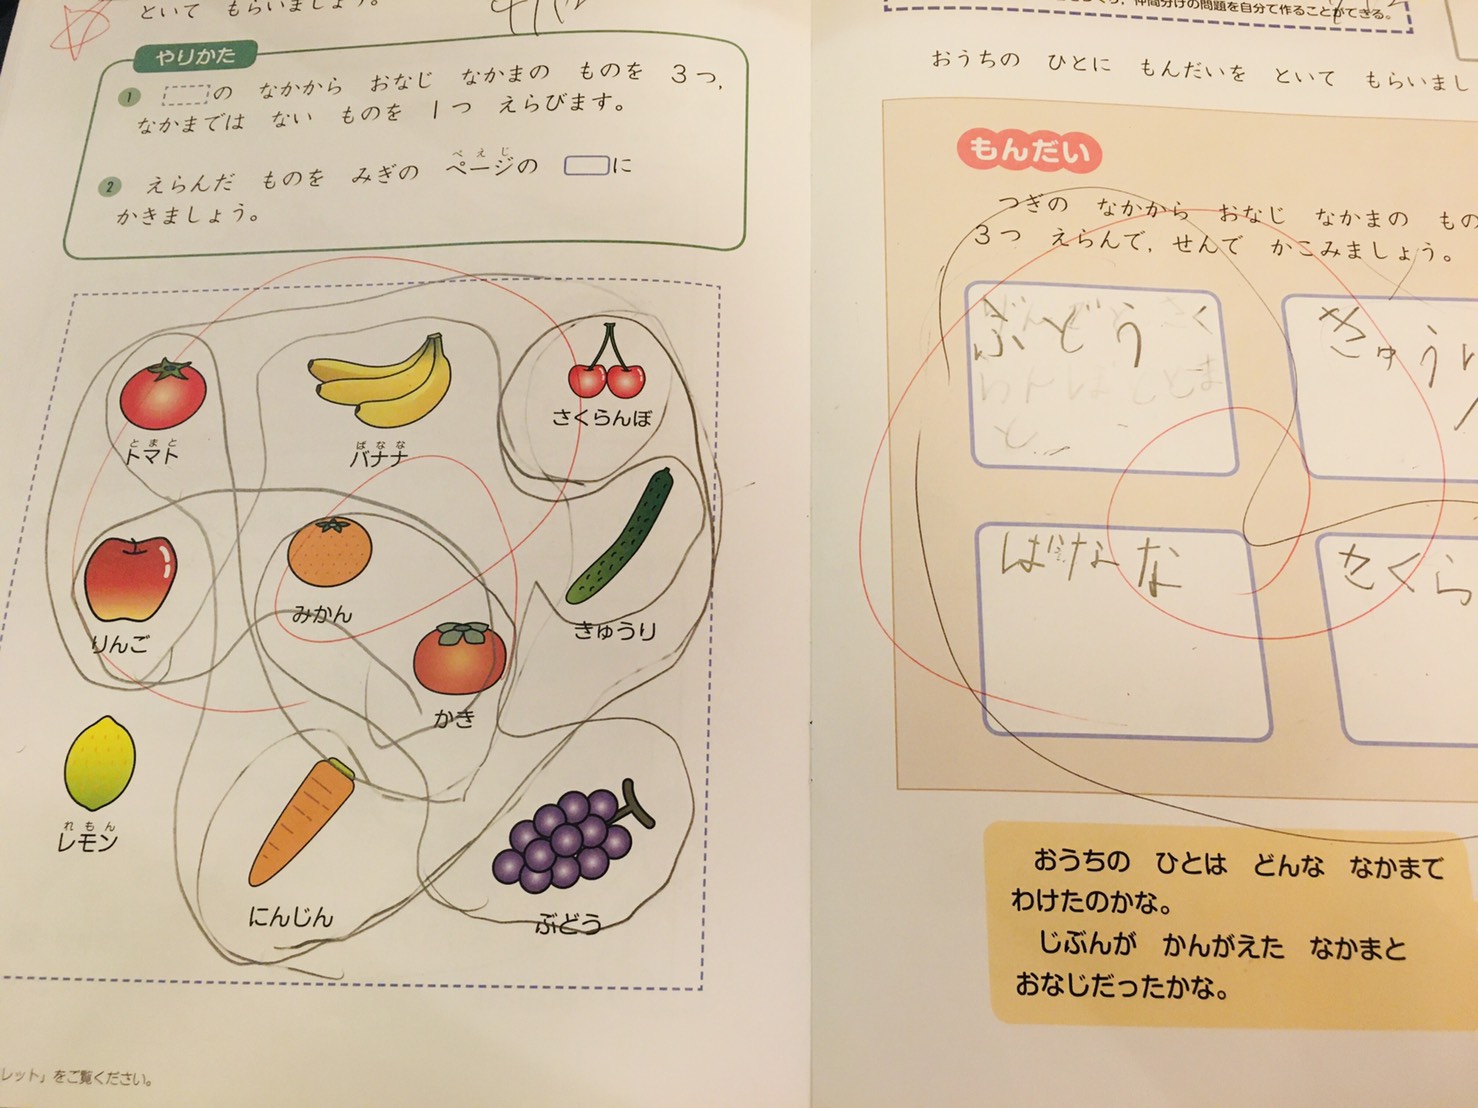 といて もらいましょう。
やりかた
1 の なかから おなじ なかまの ものを 3つ,
なかまでは ない ものを 1つ えらびます。
ぺえじ
2 えらんだ ものを みぎの ページの に
かきましょう。
トマト
とまと
バナナ
ばなな
さくらんぼ
りんご
みかん
きゅうり
かき
レモン
れもん
にんじん
ぶどう
レット」をご覧ください。
仲間分けの問題を自分で作ることができる。
おうちの ひとに もんだいを といて もらいまし
もんだい
つぎの なかから おなじ なかまの もの
3つ えらんで,せんで かこみましょう。
ぶどう
きゅうり
ばなな
さくら
おうちの ひとは どんな なかまで
わけたのかな。
じぶんが かんがえた なかまと
おなじだったかな。